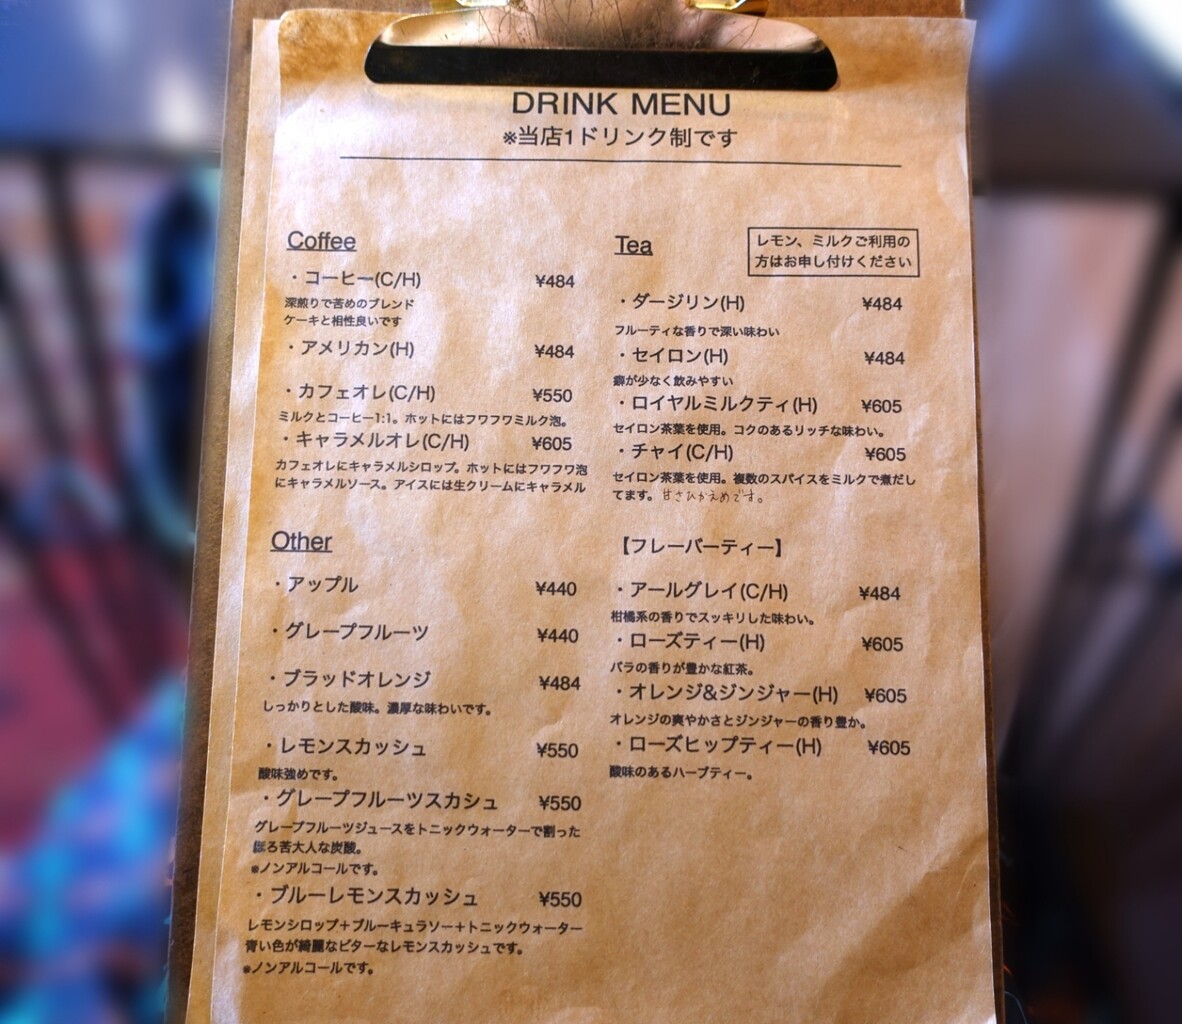 DRINK MENU
※当店1ドリンク制です
Coffee
・コーヒー(C/H) ¥484
深煎りで苦めのブレンド
ケーキと相性良いです
・アメリカン(H) ¥484
・カフェオレ(C/H) ¥550
ミルクとコーヒー1:1。ホットにはフワフワミルク泡。
・キャラメルオレ(C/H) ¥605
カフェオレにキャラメルシロップ。ホットにはフワフワ泡
にキャラメルソース。アイスには生クリームにキャラメル
Other
・アップル ¥440
・グレープフルーツ ¥440
・ブラッドオレンジ ¥484
しっかりとした酸味。濃厚な味わいです。
・レモンスカッシュ ¥550
酸味強めです。
・グレープフルーツスカシュ ¥550
グレープフルーツジュースをトニックウォーターで割った
ほろ苦大人な炭酸。
※ノンアルコールです。
・ブルーレモンスカッシュ ¥550
レモンシロップ＋ブルーキュラソー＋トニックウォーター
青い色が綺麗なビターなレモンスカッシュです。
※ノンアルコールです。
Tea
レモン、ミルクご利用の
方はお申し付けください
・ダージリン(H) ¥484
フルーティな香りで深い味わい
・セイロン(H) ¥484
癖が少なく飲みやすい
・ロイヤルミルクティ(H) ¥605
セイロン茶葉を使用。コクのあるリッチな味わい。
・チャイ(C/H) ¥605
セイロン茶葉を使用。複数のスパイスをミルクで煮だし
てます。甘さひかえめです。
【フレーバーティー】
・アールグレイ(C/H) ¥484
柑橘系の香りでスッキリした味わい。
・ローズティー(H) ¥605
バラの香りが豊かな紅茶。
・オレンジ&ジンジャー(H) ¥605
オレンジの爽やかさとジンジャーの香り豊か。
・ローズヒップティー(H) ¥605
酸味のあるハーブティー。